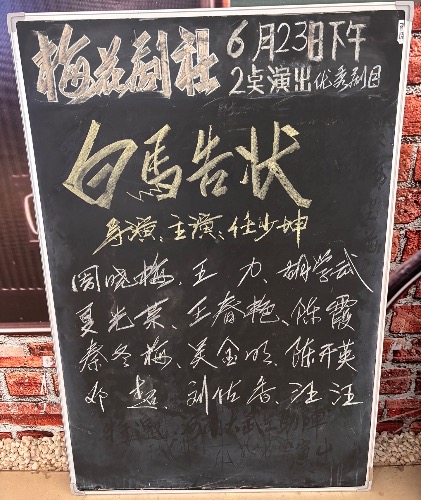 梅花剧社
6月23日下午
2点演出优秀剧目
白馬告状
导演、主演:任少坤
周晓梅、王力、胡学武
夏光荣、王春艳、陈霞
秦冬梅、吴金明、陈开英
邓超、刘佐香、汪汪